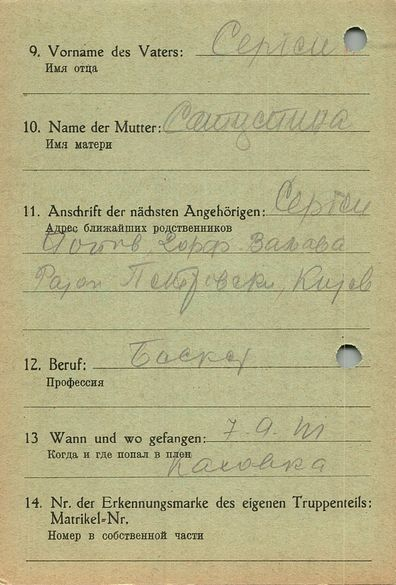 9. Vorname des Vaters: Сергеи
Имя отца
10. Name der Mutter:
Имя матери
11. Anschrift der nächsten Angehörigen: Сергеи
Адрес ближайших родственников
Дорф
Район Петровски, Киев
12. Beruf:
Профессия
13 Wann und wo gefangen: 7.9.41
Когда и где попал в плен
Каховка
14. Nr. der Erkennungsmarke des eigenen Truppenteils:
Matrikel-Nr.
Номер в собственной части